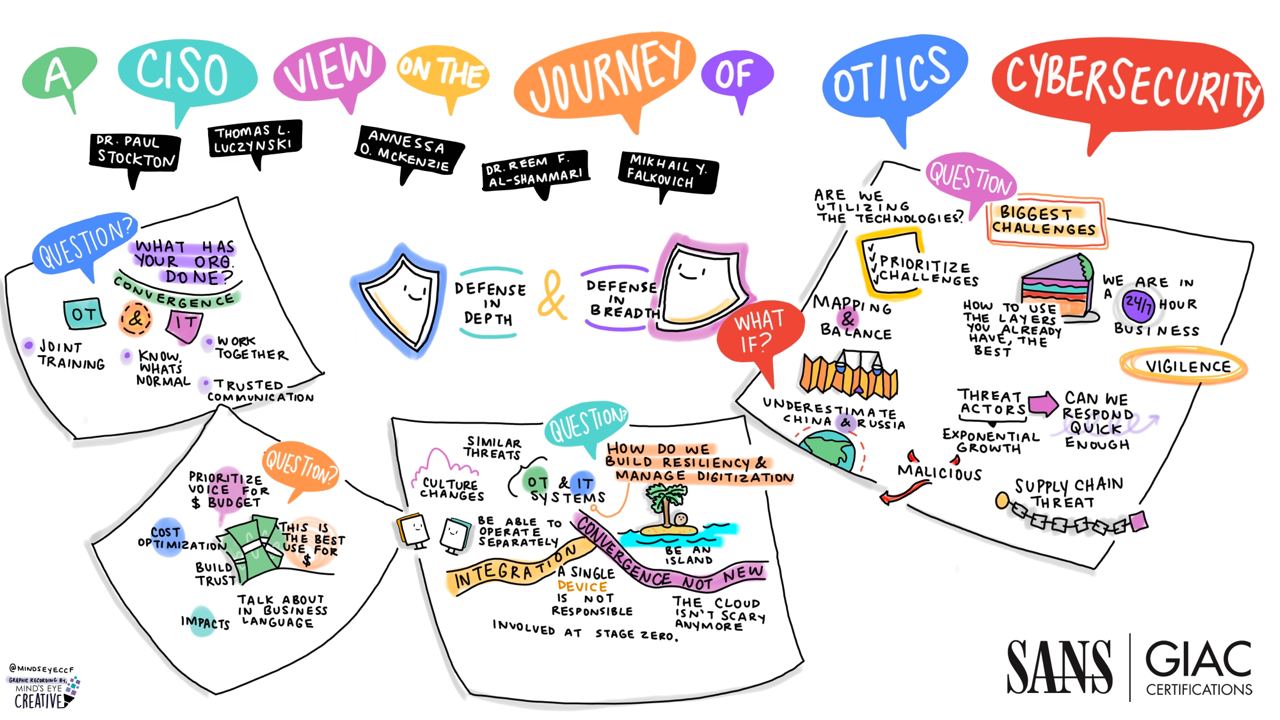 A CISO VIEW ON THE JOURNEY OF OT/ICS CYBERSECURITY
DR. PAUL
STOCKTON
THOMAS L.
LUCZYNSKI
ANNESSA
O. MCKENZIE
DR. REEM F.
AL-SHAMMARI
MIKHAIL Y.
FALKOVICH
QUESTION?
WHAT HAS
YOUR ORG.
DONE?
CONVERGENCE
OT & IT
JOINT
TRAINING
KNOW
WHATS
NORMAL
WORK
TOGETHER
TRUSTED
COMMUNICATION
DEFENSE
IN
DEPTH
&
DEFENSE
IN
BREADTH
WHAT
IF?
QUESTION
ARE WE
UTILIZING
THE TECHNOLOGIES?
BIGGEST
CHALLENGES
PRIORITIZE
CHALLENGES
MAPPING
&
BALANCE
UNDERESTIMATE
CHINA & RUSSIA
HOW TO USE
THE LAYERS
YOU ALREADY
HAVE, THE
BEST
WE ARE IN
A 24/7 HOUR
BUSINESS
VIGILENCE
THREAT
ACTORS
EXPONENTIAL
GROWTH
CAN WE
RESPOND
QUICK
ENOUGH
MALICIOUS
SUPPLY CHAIN
THREAT
QUESTION?
PRIORITIZE
VOICE FOR
$ BUDGET
COST
OPTIMIZATION
THIS IS
THE BEST
USE FOR
$
BUILD
TRUST
TALK ABOUT
IN BUSINESS
LANGUAGE
IMPACTS
QUESTION?
HOW DO WE
BUILD RESILIENCY &
MANAGE DIGITIZATION
SIMILAR
THREATS
OT & IT
SYSTEMS
CULTURE
CHANGES
BE ABLE TO
OPERATE
SEPARATELY
BE AN
ISLAND
INTEGRATION
CONVERGENCE NOT NEW
A SINGLE
DEVICE
IS NOT
RESPONSIBLE
THE CLOUD
ISN'T SCARY
ANYMORE
INVOLVED AT STAGE ZERO.
@MINDSEYECCF
GRAPHIC RECORDING BY:
MIND'S EYE
CREATIVE
SANS
GIAC
CERTIFICATIONS